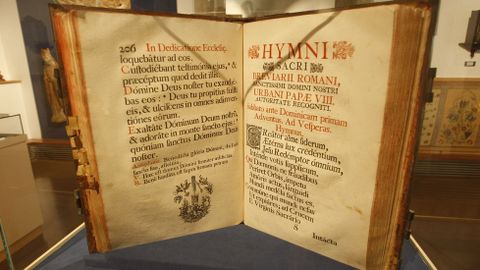 206 In Dedicatione Ecclesię.
loquebátur ad eos.
Custodiébant testimónia ejus, * &
præceptum quod dedit illis.
Dómine Deus noster tu exaudié-
bas eos: * Deus tu propítius fuísti
eis, & ulcíscens in omnes adinven-
tiónes eórum.
Exaltáte Dóminum Deum nostrũ,
& adoráte in monte sancto ejus: *
quóniam sanctus Dóminus Deus
noster.
HYMNI
SACRI
BREVIARII ROMANI,
SANCTISSIMI DOMINI NOSTRI
URBANI PAPÆ VIII.
AUTORITATE RECOGNITI.
Sabbato ante Dominicam primam
Adventus, Ad Vesperas.
Hymnus.
CReátor alme síderum,
Ætérna lux credéntium,
Jesu Redémptor ómnium,
Inténde votis súpplicum.
Qui Dæmonis ne fráudibus
Períret Orbis, ímpetu
Amóris actus, lánguidi
Mundi medéla factus es.
Commúne qui mundi nefas
Ut expiáres; ad Crucem
E Vírginis Sacrário
S
Intácta